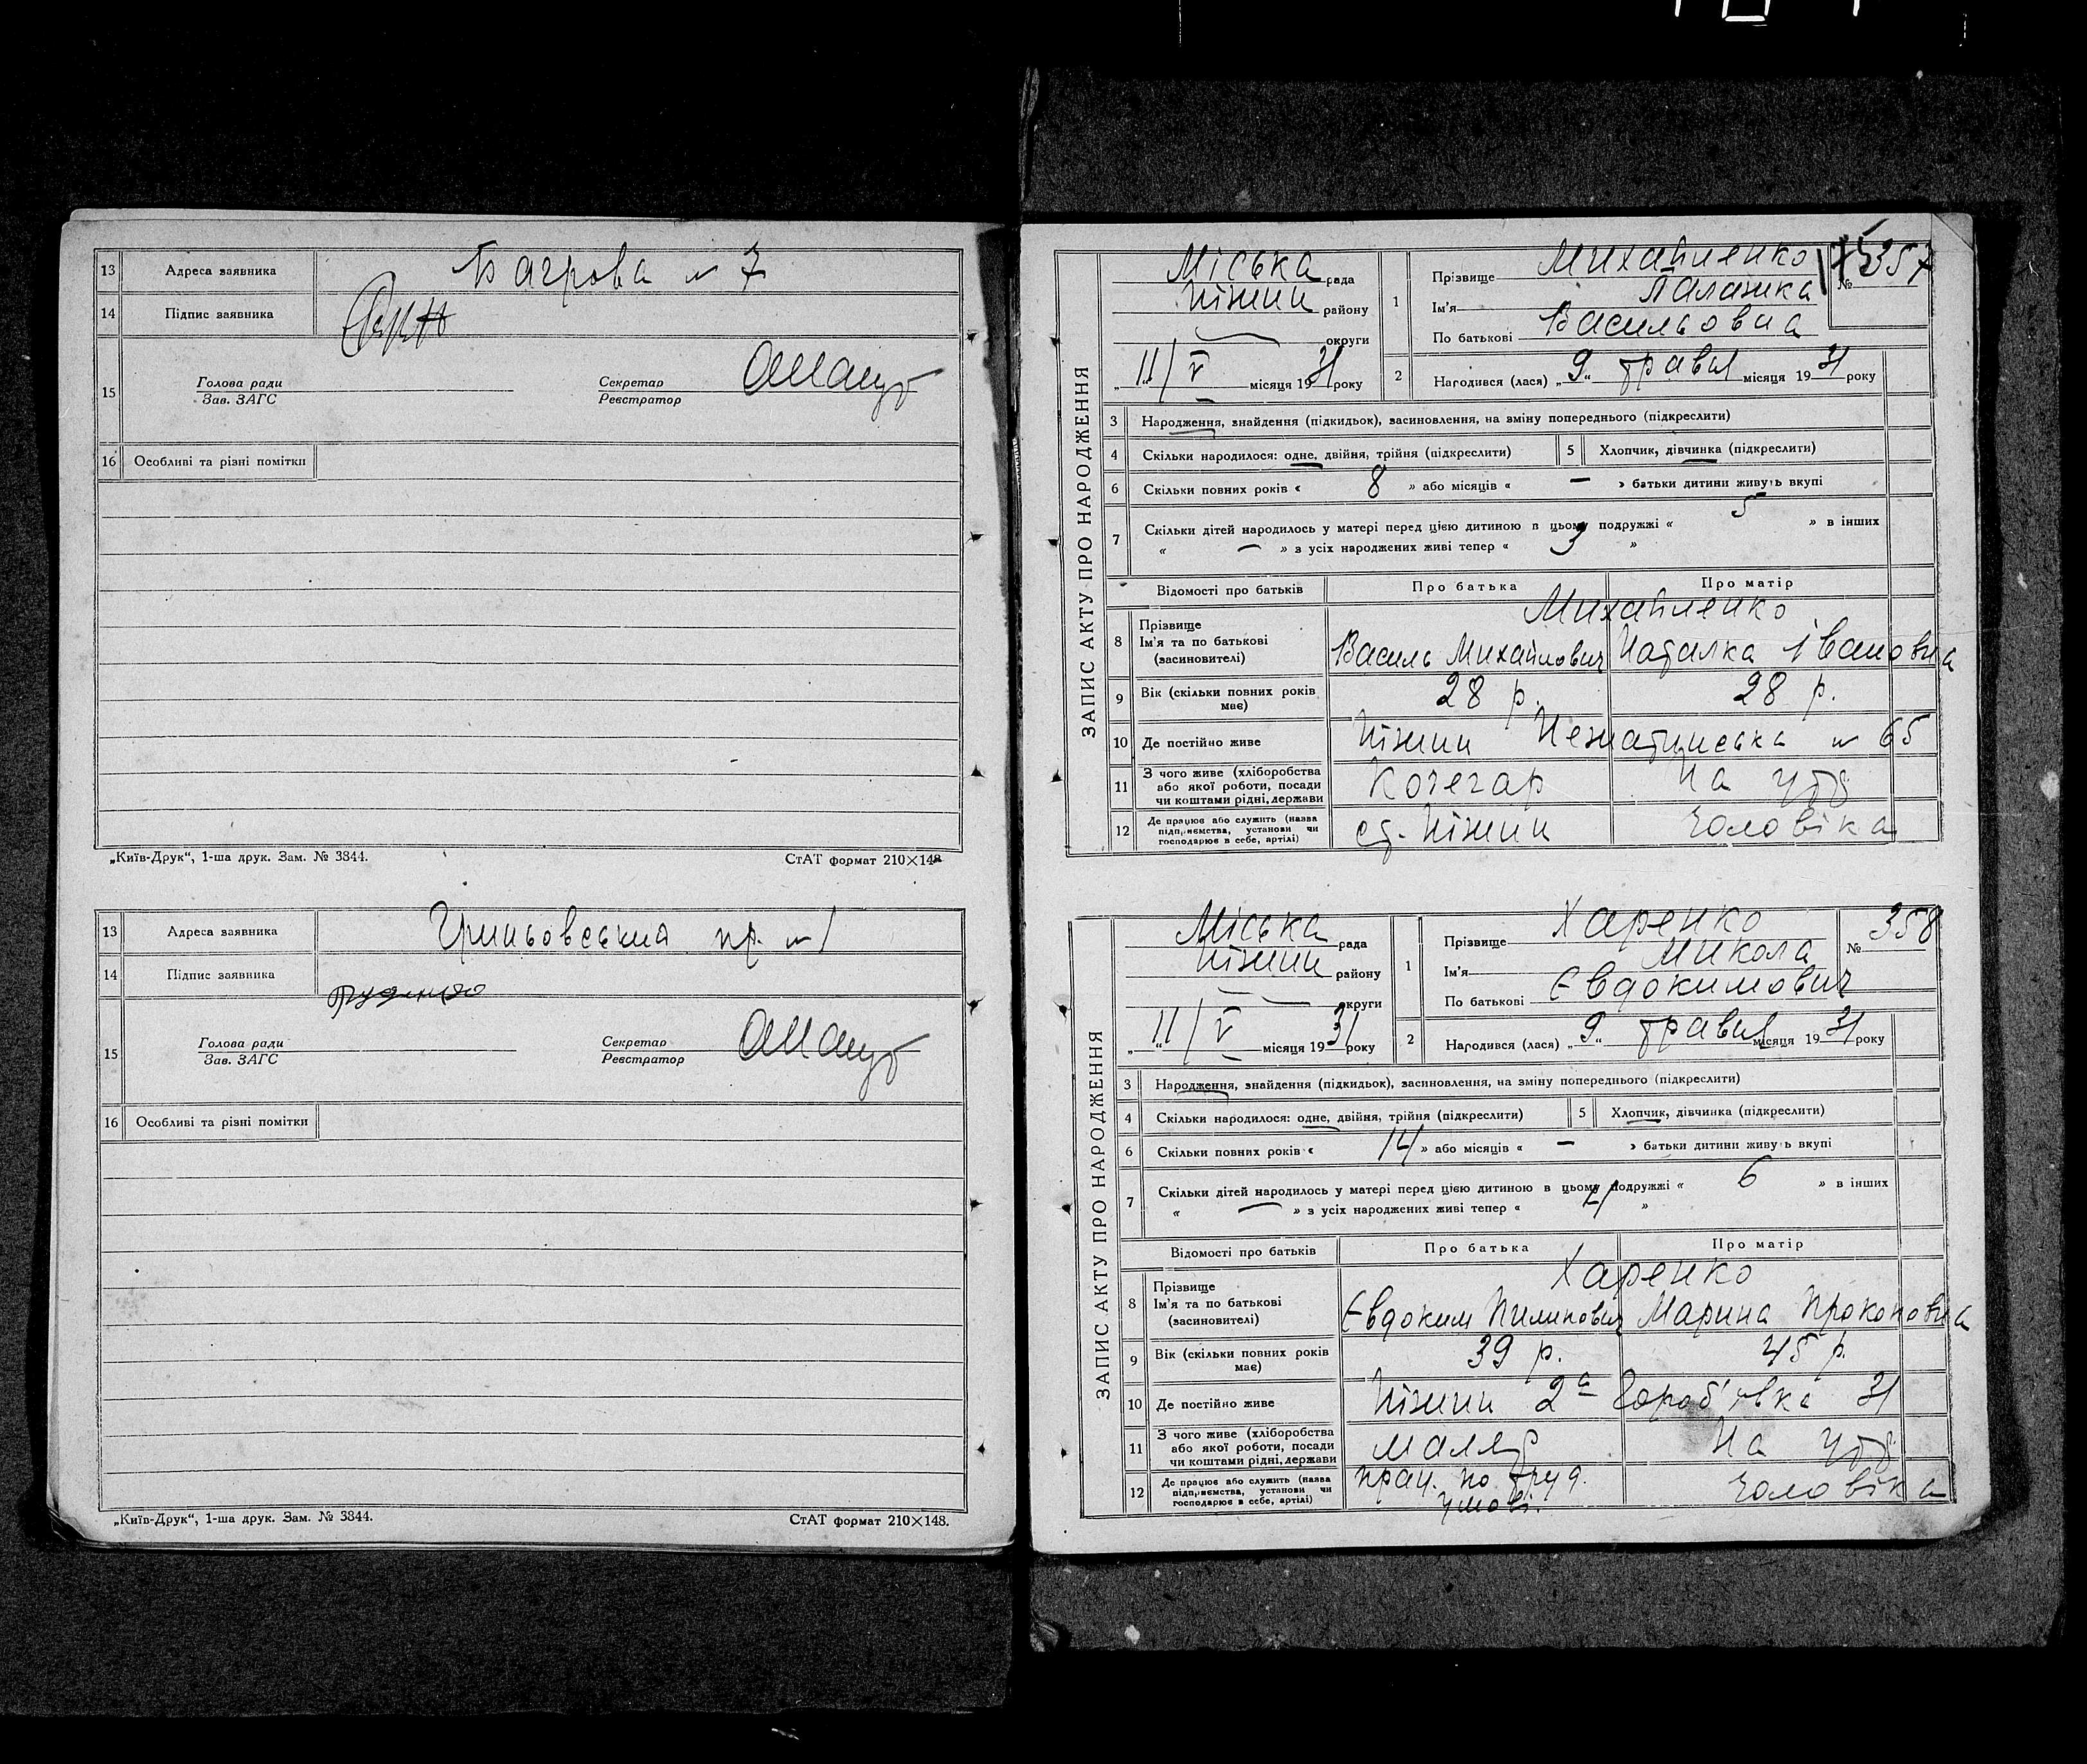 13 Адреса заявника Багрова № 7
14 Підпис заявника
15 Голова ради Секретар
Зав. ЗАГС Реєстратор
16 Особливі та різні помітки
„Київ-Друк“, 1-ша друк. Зам. № 3844. СтАТ формат 210×148
13 Адреса заявника пр. № 1
14 Підпис заявника
15 Голова ради Секретар
Зав. ЗАГС Реєстратор
16 Особливі та різні помітки
„Київ-Друк“, 1-ша друк. Зам. № 3844. СтАТ формат 210×148.
ЗАПИС АКТУ ПРО НАРОДЖЕННЯ
Міська рада
Ніжин району
округи
„11“ / V місяця 1931 року
1 Прізвище Михайленко № 357
Ім'я Палажка
По батькові Васильовна
2 Народився (лася) „9“ травня місяця 1931 року
3 Народження, знайдення (підкидьок), засиновлення, на зміну попереднього (підкреслити)
4 Скільки народилося: одне, двійня, трійня (підкреслити) 5 Хлопчик, дівчинка (підкреслити)
6 Скільки повних років « 8 » або місяців « — » батьки дитини живуть вкупі
7 Скільки дітей народилось у матері перед цією дитиною в цьому подружжі « 5 » в інших
« — » з усіх народжених живі тепер « 3 »
Відомості про батьків Про батька Про матір
8 Прізвище Михайленко
Ім'я та по батькові
(засиновителі) Василь Михайлович Наталка Івановна
9 Вік (скільки повних років має) 28 р. 28 р.
10 Де постійно живе Ніжин № 65
11 З чого живе (хліборобства
або якої роботи, посади
чи коштами рідні, держави Кочегар На утр
12 Де працює або служить (назва
підприємства, установи чи
господарює в себе, артілі) ст. Ніжин чоловіка
ЗАПИС АКТУ ПРО НАРОДЖЕННЯ
Міська рада
Ніжин району
округи
„11“ / V місяця 1931 року
1 Прізвище Харенко № 358
Ім'я Микола
По батькові Євдокимович
2 Народився (лася) „9“ травня місяця 1931 року
3 Народження, знайдення (підкидьок), засиновлення, на зміну попереднього (підкреслити)
4 Скільки народилося: одне, двійня, трійня (підкреслити) 5 Хлопчик, дівчинка (підкреслити)
6 Скільки повних років « 14 » або місяців « — » батьки дитини живуть вкупі
7 Скільки дітей народилось у матері перед цією дитиною в цьому подружжі « 6 » в інших
« — » з усіх народжених живі тепер « 4 »
Відомості про батьків Про батька Про матір
8 Прізвище Харенко
Ім'я та по батькові
(засиновителі) Євдоким Пилипович Марина Прокоповна
9 Вік (скільки повних років має) 39 р. 45 р.
10 Де постійно живе Ніжин 2а 31
11 З чого живе (хліборобства
або якої роботи, посади
чи коштами рідні, держави маляр На утр
12 Де працює або служить (назва
підприємства, установи чи
господарює в себе, артілі) прац. по труд. чоловіка
умові.